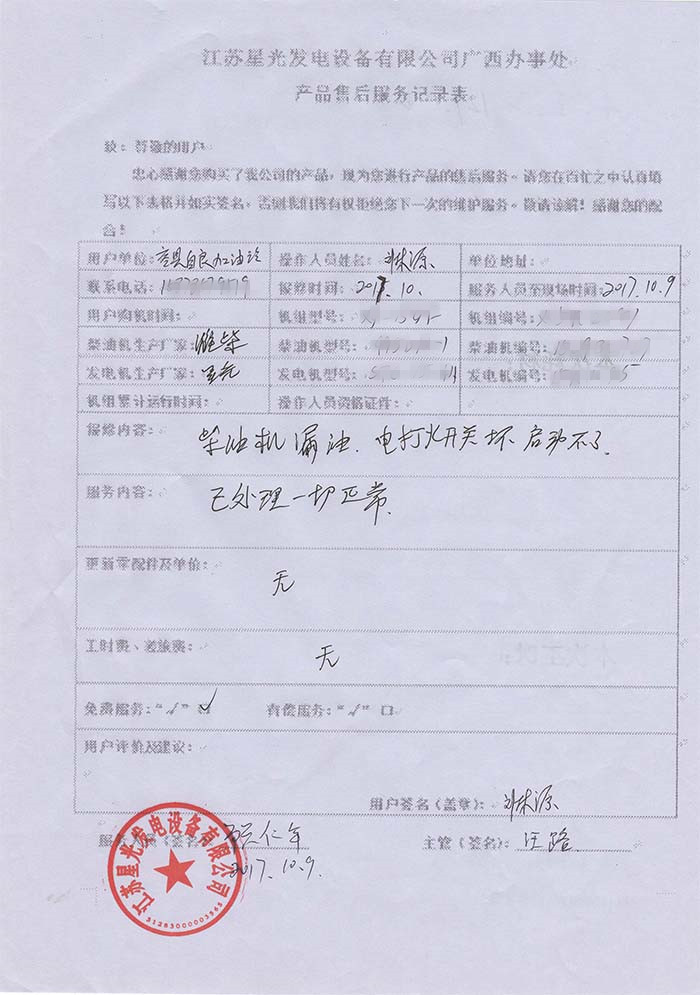 江苏星光发电设备有限公司广西办事处
产品售后服务记录表
致：尊敬的用户
忠心感谢您购买了我公司的产品，现为您进行产品的售后服务。请您在百忙之中认真填
写以下表格并如实签名，否则我们将有权拒绝您下一次的维护服务。敬请谅解！感谢您的配
合！
用户单位: 自良加油站 操作人员姓名: 林源 单位地址:
联系电话: 报修时间: 2017.10. 服务人员至现场时间: 2017.10.9
用户购机时间: 机组型号: 机组编号:
柴油机生产厂家: 潍柴 柴油机型号: 柴油机编号:
发电机生产厂家: 星光 发电机型号: 发电机编号:
机组累计运行时间: 操作人员资格证件:
报修内容: 柴油机漏油、电打火开关坏 启动不了
服务内容: 已处理一切正常
更新零配件及单价: 无
工时费、差旅费: 无
免费服务: “√” 口 √ 有偿服务: “√” 口
用户评价及建议:
用户签名(盖章): 林源
服务 (签名) 仁年 主管(签名): 汪路
2017.10.9.
江苏星光发电设备有限公司